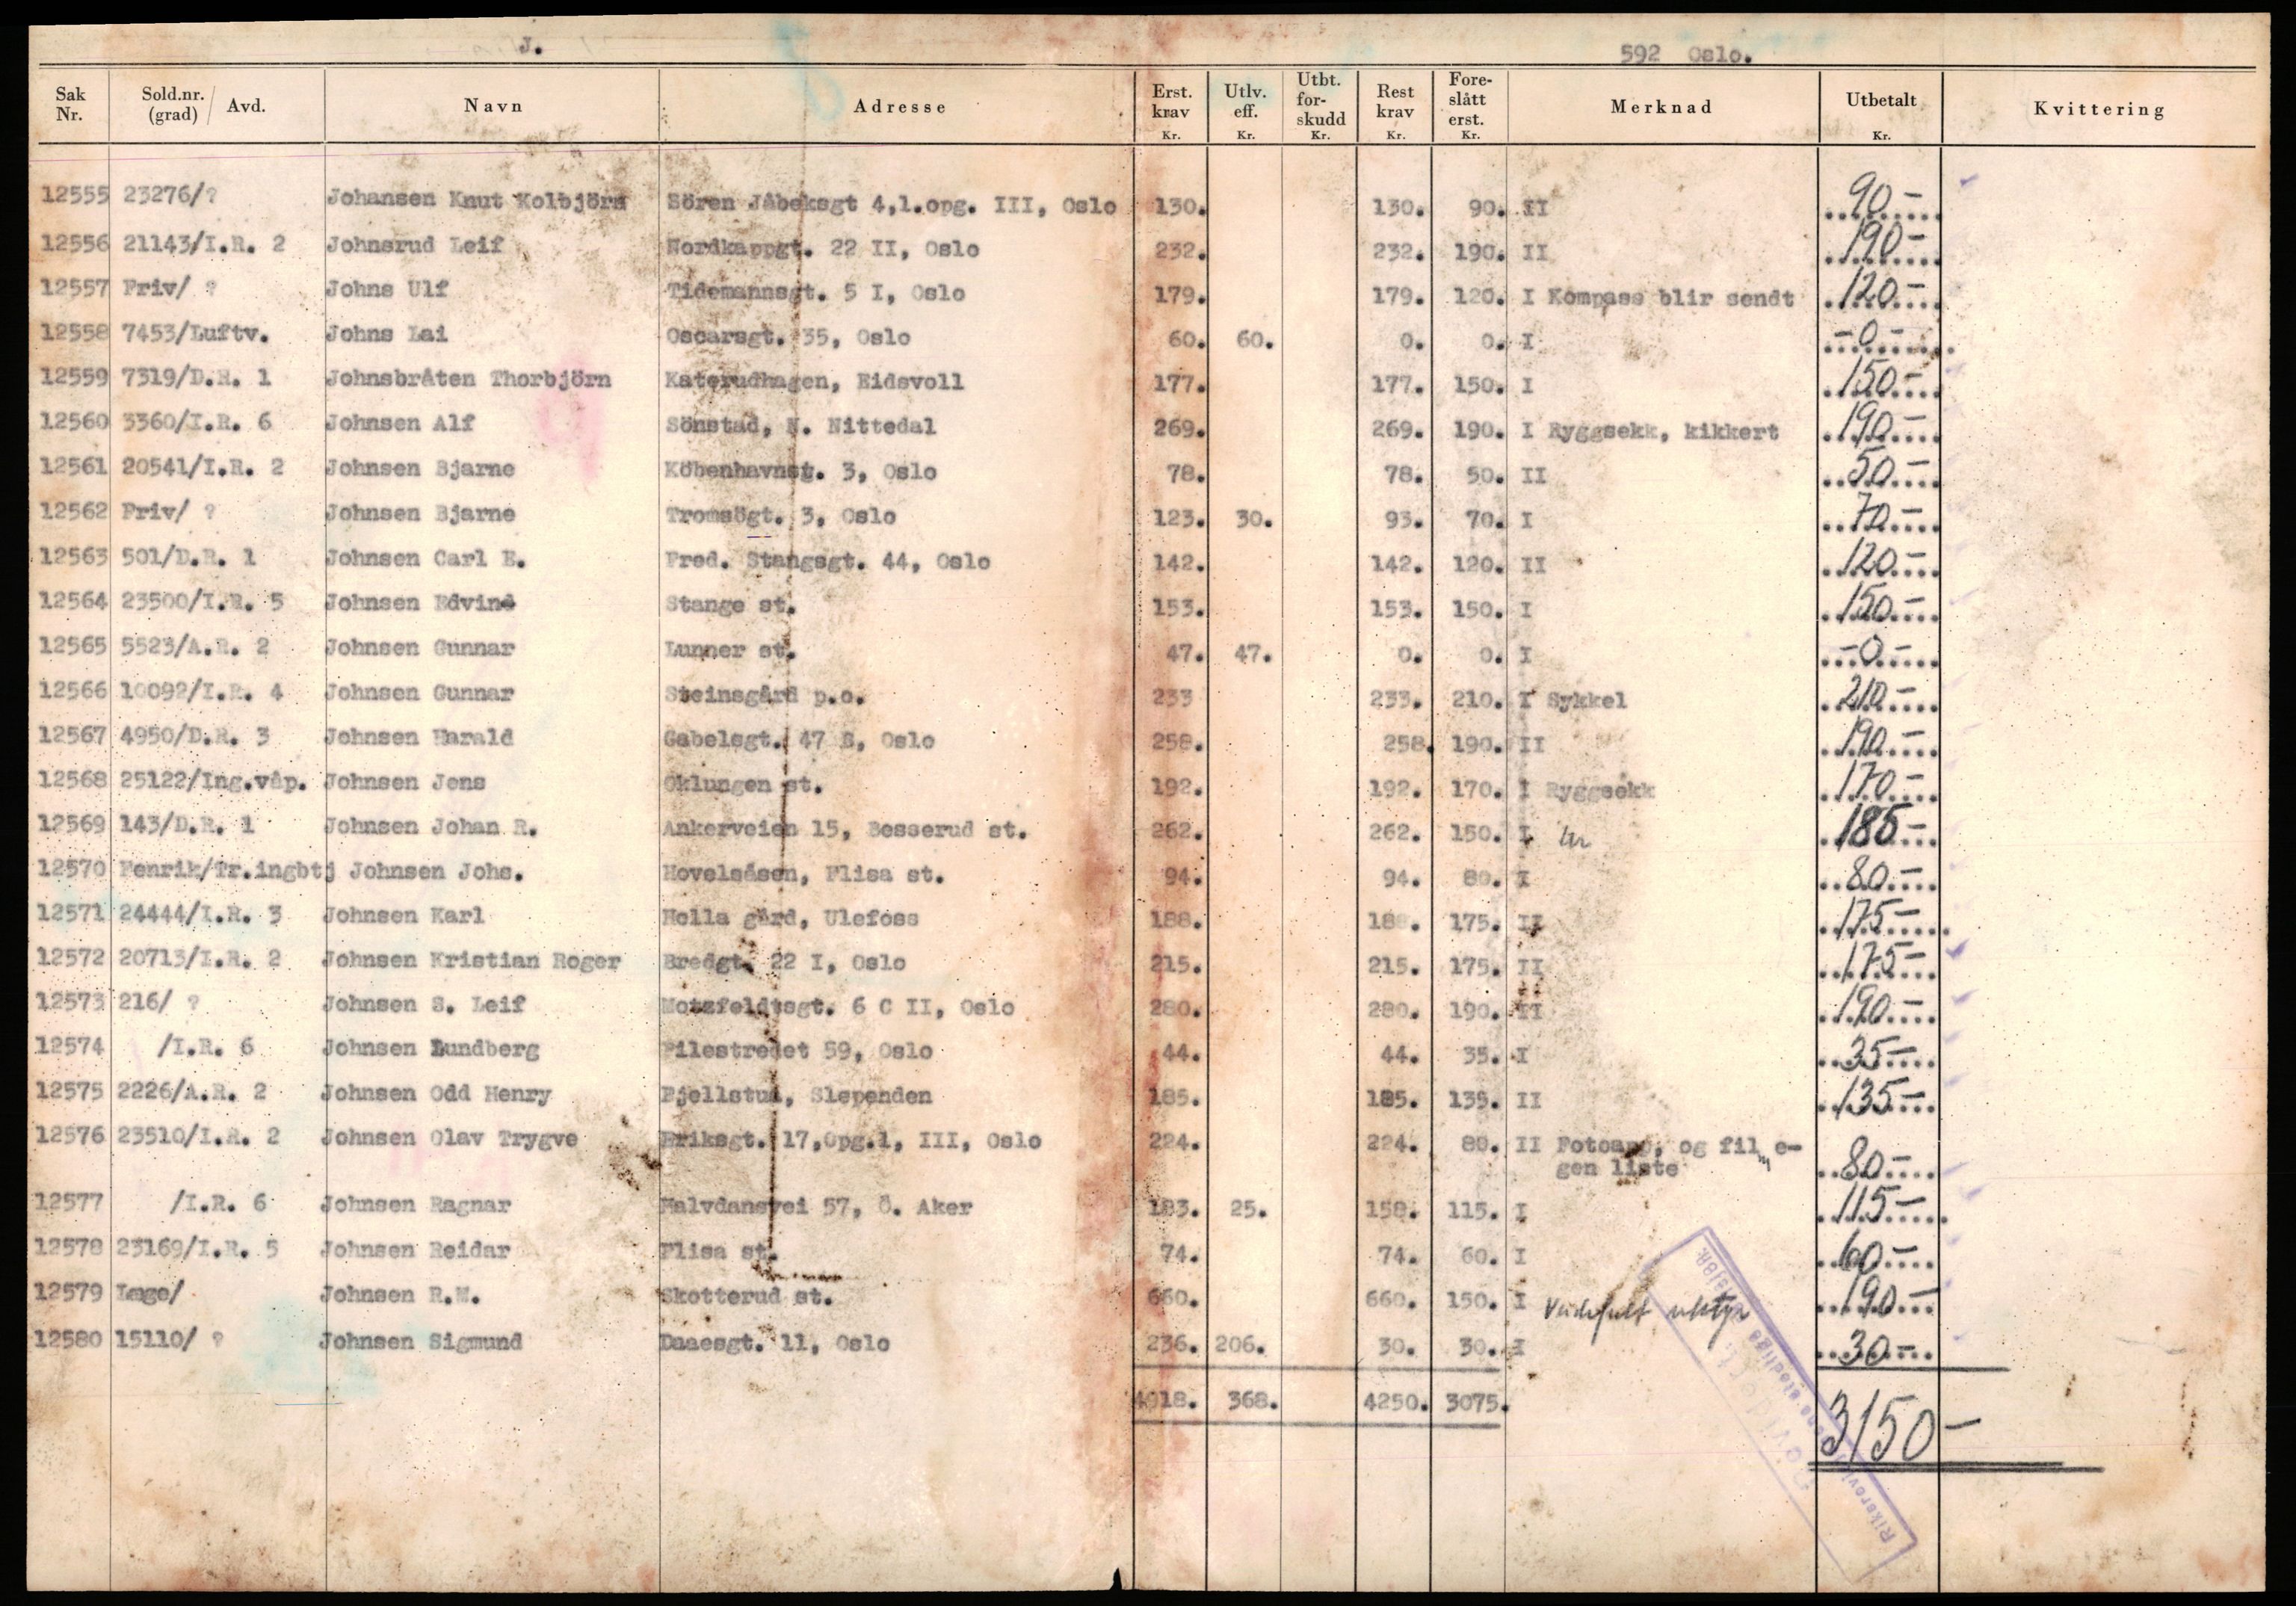 J.
592 Oslo.
Sak Nr. Sold.nr. (grad) / Avd. Navn Adresse Erst. krav Kr. Utlv. eff. Kr. Utbt. for- skudd Kr. Rest krav Kr. Fore- slått erst. Kr. Merknad Utbetalt Kr. Kvittering
12555 23276/? Johansen Knut Kolbjörn Sören Jåbeksgt 4,1.opg. III, Oslo 130. 130. 90. II 90-
12556 21143/I.R. 2 Johnsrud Leif Nordkappgt. 22 II, Oslo 232. 232. 190. II 190-
12557 Priv/ ? Johns Ulf Tidemannsgt. 5 I, Oslo 179. 179. 120. I Kompass blir sendt 120-
12558 7453/Luftv. Johns Lai Oscarsgt. 35, Oslo 60. 60. 0. 0. I -0-
12559 7319/D.R. 1 Johnsbråten Thorbjörn Katerudhagen, Eidsvoll 177. 177. 150. I 150-
12560 3360/I.R. 6 Johnsen Alf Sönstad, N. Nittedal 269. 269. 190. I Ryggsekk, kikkert 190-
12561 20541/I.R. 2 Johnsen Bjarne Köbenhavnst. 3, Oslo 78. 78. 50. II 50-
12562 Priv/ ? Johnsen Bjarne Tromsögt. 3, Oslo 123. 30. 93. 70. I 70-
12563 501/D.R. 1 Johnsen Carl E. Fred. Stangsgt. 44, Oslo 142. 142. 120. II 120-
12564 23500/I.R. 5 Johnsen Edvind Stange st. 153. 153. 150. I 150-
12565 5523/A.R. 2 Johnsen Gunnar Lunner st. 47. 47. 0. 0. I -0-
12566 10092/I.R. 4 Johnsen Gunnar Steinsgård p.o. 233 233. 210. I Sykkel 210-
12567 4950/D.R. 3 Johnsen Harald Gabelsgt. 47 B, Oslo 258. 258. 190. II 190-
12568 25122/Ing.våp. Johnsen Jens Oklungen st. 192. 192. 170. I Ryggsekk 170-
12569 143/D.R. 1 Johnsen Johan R. Ankerveien 15, Besserud st. 262. 262. 150. I Ur 185-
12570 Fenrik/Tr.ingbtj Johnsen Johs. Hovelsåsen, Flisa st. 94. 94. 80. I 80-
12571 24444/I.R. 3 Johnsen Karl Holla gård, Ulefoss 188. 188. 175. II 175-
12572 20713/I.R. 2 Johnsen Kristian Roger Bredgt. 22 I, Oslo 215. 215. 175. II 175-
12573 216/ ? Johnsen S. Leif Motzfeldtsgt. 6 C II, Oslo 280. 280. 190. II 190-
12574 /I.R. 6 Johnsen Lundberg Pilestredet 59, Oslo 44. 44. 35. I 35-
12575 2226/A.R. 2 Johnsen Odd Henry Fjellstui, Slependen 185. 185. 135. II 135-
12576 23510/I.R. 2 Johnsen Olav Trygve Eriksgt. 17,Opg.1, III, Oslo 224. 224. 80. II Fotoapp. og film e-
gen liste 80-
12577 /I.R. 6 Johnsen Ragnar Halvdansvei 57, Ö. Aker 183. 25. 158. 115. I 115-
12578 23169/I.R. 5 Johnsen Reidar Flisa st. 74. 74. 60. I 60-
12579 Lage/ Johnsen R.M. Skotterud st. 660. 660. 150. I 190-
12580 15110/ ? Johnsen Sigmund Daaesgt. 11, Oslo 236. 206. 30. 30. I 30-
4918. 368. 4250. 3075.
3150-